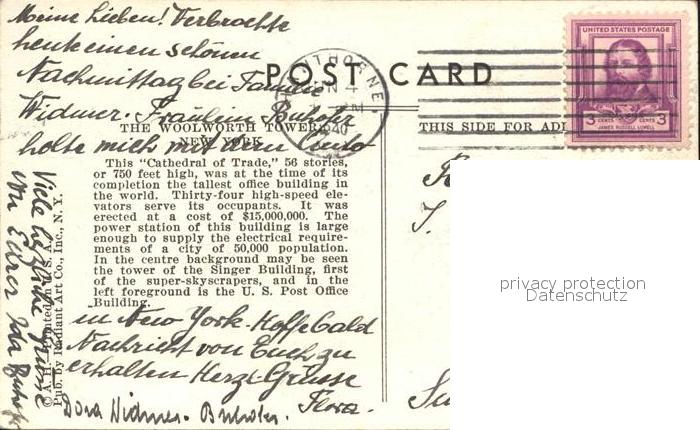 Meine Lieben! Verbrachte
heute einen schönen
Nachmittag bei Familie
Widmer. Fräulein Buhofer
holte mich mit dem Auto
in New York. Hoffe bald
Nachricht von Euch zu
erhalten Herzl. Grüsse
Flora.
Dora Widmer-Buhofer.
Viele herzliche Grüsse
von Eurer Ida Buhofer
POST CARD
THE WOOLWORTH TOWER
NEW YORK
This "Cathedral of Trade," 56 stories,
or 750 feet high, was at the time of its
completion the tallest office building in
the world. Thirty-four high-speed ele-
vators serve its occupants. It was
erected at a cost of $15,000,000. The
power station of this building is large
enough to supply the electrical require-
ments of a city of 50,000 population.
In the centre background may be seen
the tower of the Singer Building, first
of the super-skyscrapers, and in
the left foreground is the U. S. Post Office
Building.
Pub. by Radiant Art Co., Inc., N. Y.
THIS SIDE FOR
UNITED STATES POSTAGE
3 CENTS CENTS 3
JAMES RUSSELL LOWELL
privacy protection
Datenschutz